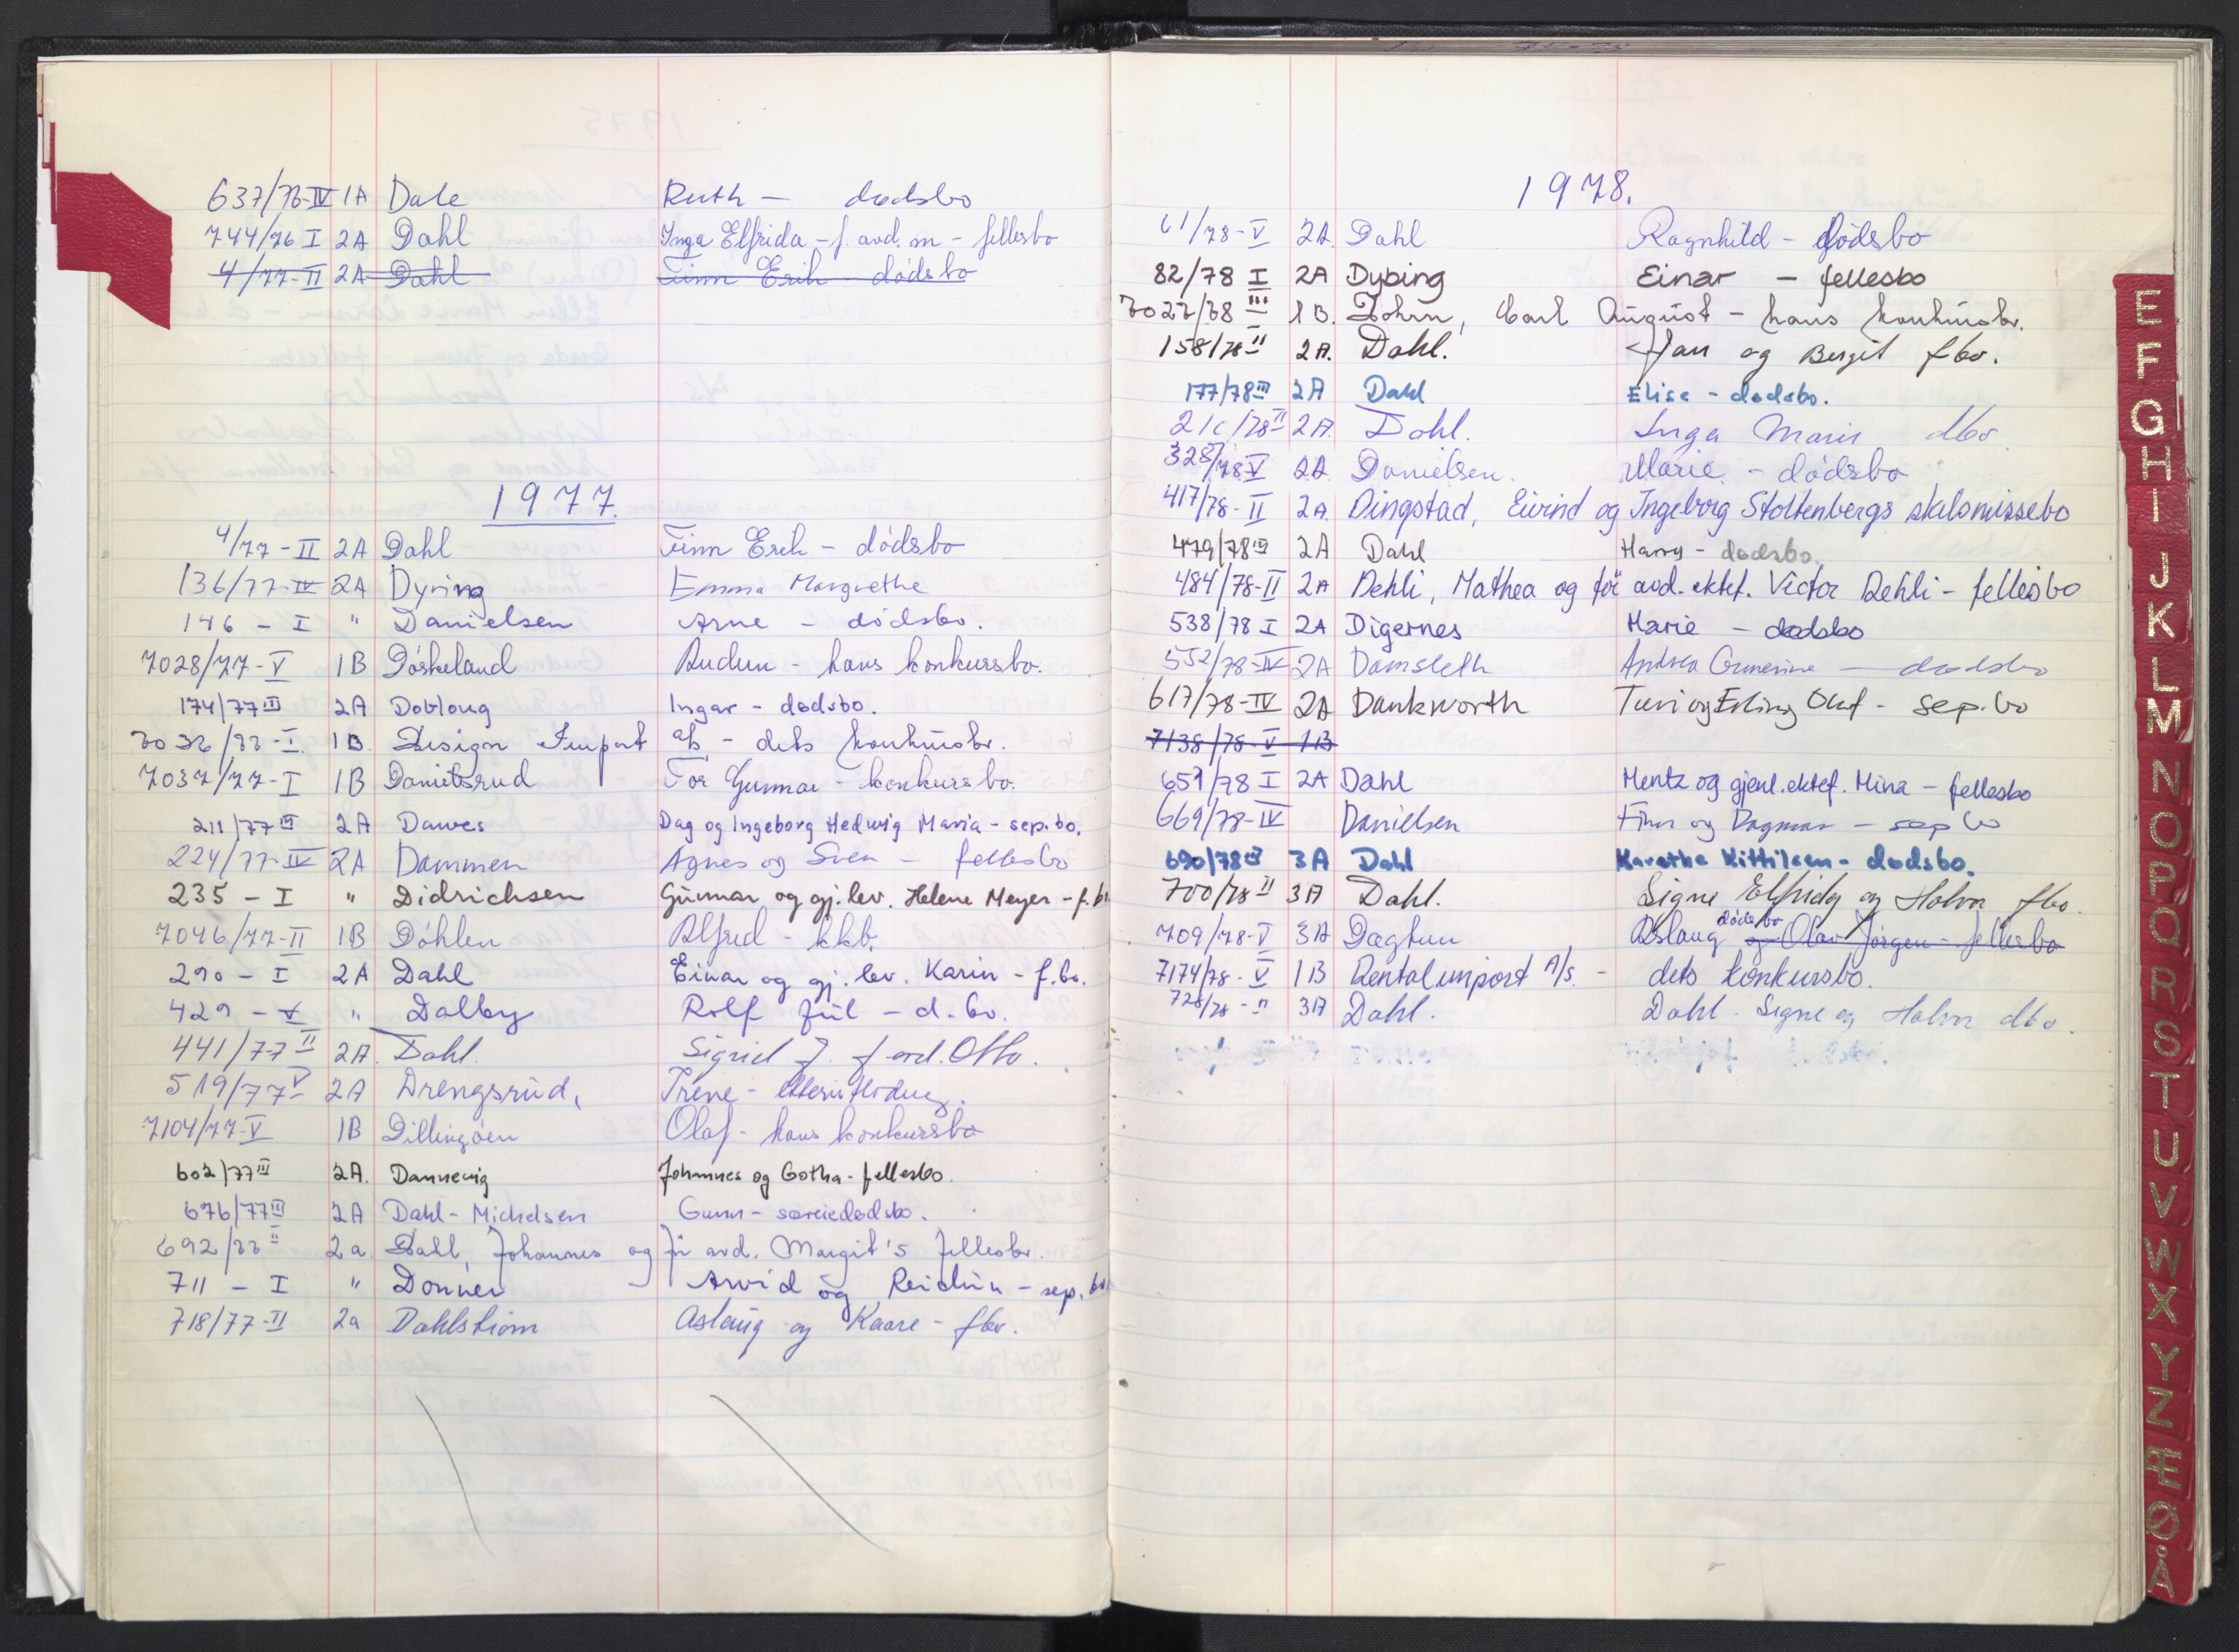 637/76-IV 1A Dale Ruth — dødsbo
744/76 I 2A Dahl Inga Elfrida - f. avd. m - fellesbo
4/77-II 2A Dahl Finn Erik dødsbo
1977.
4/77-II 2A Dahl Finn Erik - dødsbo
136/77-IV 2A Dyring Emma Margrethe
146 - I " Danielsen Arne - dødsbo.
7028/77-V 1B Døskeland Audun - hans konkursbo.
174/77 III 2A Dobloug Ingar - dødsbo.
7036/77-I. 1B. Design Import a/s - dets konkursbo.
7037/77-I 1B Danielsrud Tor Gunnar - konkursbo.
211/77 III 2A Dawes Dag og Ingeborg Hedwig Maria - sep.bo.
224/77-IV 2A Dammen Agnes og Sven - fellesbo
235 - I " Didrichsen Gunnar og gj. lev. Helene Meyer - f.bo
7046/77-II 1B Døhlen Alfred - kkb.
290 - I 2A Dahl Einar og gj. lev. Karin - f.bo.
429 - V " Dalby Rolf Juul - d.bo.
441/77 II 2A. Dahl. Sigrid J. f. avd. Otto.
519/77 V 2A Drengsrud, Irene -
7104/77-V 1B Dillingøen Olaf - hans konkursbo
602/77 III 2A. Dannevig Johannes og Gotha - fellesbo.
676/77 III 2A Dahl-Michelsen Gunn - særeiedødsbo.
692/77 II 2a Dahl, Johannes og fr avd. Margit's fellesbo.
711 - I " Donner Arvid og Reidun - sep. bo
718/77-II 2a Dahlstrøm Aslaug og Kaare - fbo.
1978.
61/78-V 2A Dahl Ragnhild - dødsbo
82/78 I 2A Dybing Einar — fellesbo
7027/78 III 1B. Dohrn, Carl August - hans konkursbo.
158/78 II 2A. Dahl. Jan og Bergit fbo.
177/78 III 2A Dahl Elise - dødsbo.
216/78 II 2A. Dahl. Inga Marie dbo
328/78 V 2A Danielsen. Marie - dødsbo
417/78-II 2A. Dingstad, Eivind og Ingeborg Stoltenbergs skilsmissebo
479/78 III 2A Dahl Harry - dødsbo.
484/78-II 2A Dehli, Mathea og før avd. ektef. Victor Dehli - fellesbo
538/78 I 2A Digernes Marie — dødsbo
552/78-IV 2A Damsleth Andrea — dødsbo
617/78-IV 2A Dankworth Turi og Erling Olaf - sep.bo
7138/78-V 1B
659/78 I 2A Dahl Mentz og gjenl. ektef. Mina - fellesbo
669/78-IV Danielsen Finn og Dagmar - sep bo
690/78 III 3A Dahl Karethe Kittilsen - dødsbo.
700/78 II 3A Dahl. Signe Elfrida og Halvor fbo.
709/78-V 3A Dagtun Aslaug dødsbo og Olav Jørgen - fellesbo
7174/78-V 1B Dentalimport A/s. - dets konkursbo.
728/78-II 3A Dahl. Dahl. Signe og Halvor dbo.
E
F
G
H
I
J
K
L
M
N
O
P
Q
R
S
T
U
V
W
X
Y
Z
Æ
Ø
Å